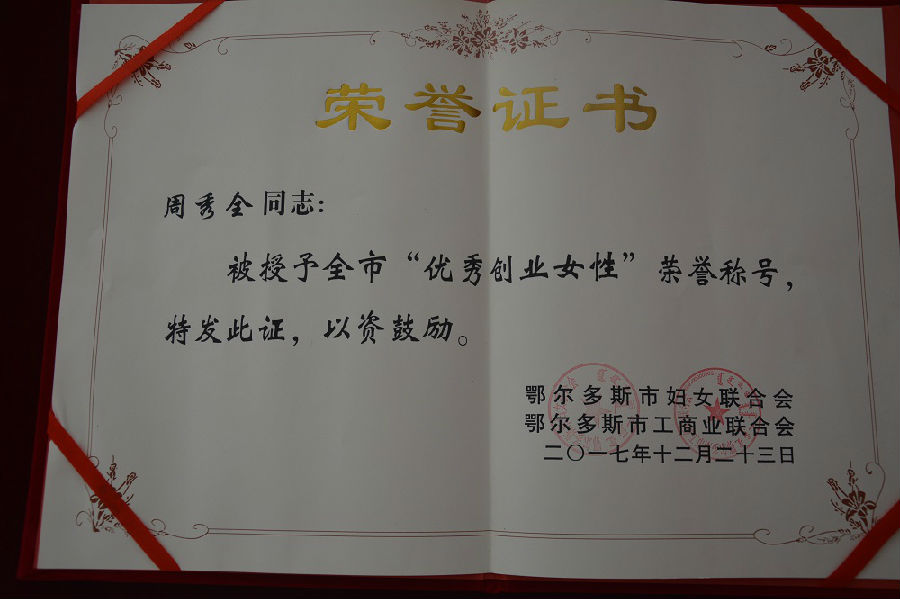 荣誉证书
周秀全同志：
被授予全市“优秀创业女性”荣誉称号，
特发此证，以资鼓励。
鄂尔多斯市妇女联合会
鄂尔多斯市工商业联合会
二〇一七年十二月二十三日